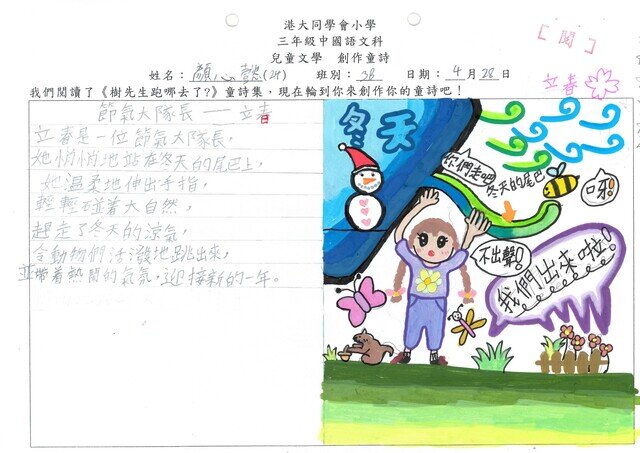 港大同學會小學
三年級中國語文科
兒童文學 創作童詩
[閱]
姓名：顏心懿(24) 班別：3B 日期：4月28日
立春
我們閱讀了《樹先生跑哪去了?》童詩集，現在輪到你來創作你的童詩吧！
節氣大隊長——立春
立春是一位節氣大隊長，
她悄悄地站在冬天的尾巴上，
她溫柔地伸出手指，
輕輕碰着大自然，
趕走了冬天的涼氣，
令動物們活潑地跳出來，
並帶着熱鬧的氣氛，迎接新的一年。
冬天
你們走吧
冬天的尾巴
吖!
不出聲!
我們出來啦!